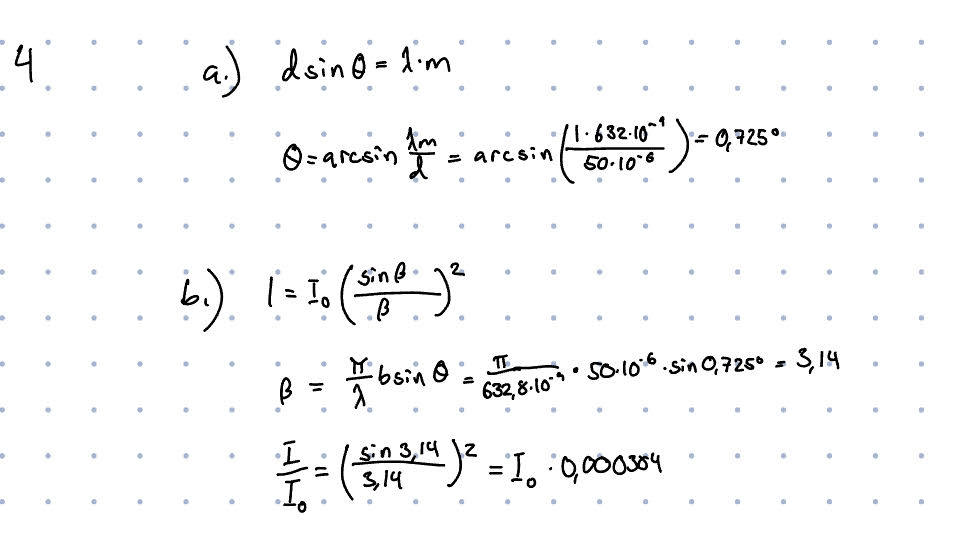 4 a.) d sin θ = λ·m
θ = arcsin λm/d = arcsin (1·632·10⁻⁹/50·10⁻⁶) = 0,725°
b.) I = I₀ (sin β/β)²
β = π/λ b sin θ = π/632,8·10⁻⁹ · 50·10⁻⁶ · sin 0,725° = 3,14
I/I₀ = (sin 3,14/3,14)² = I₀ · 0,000304